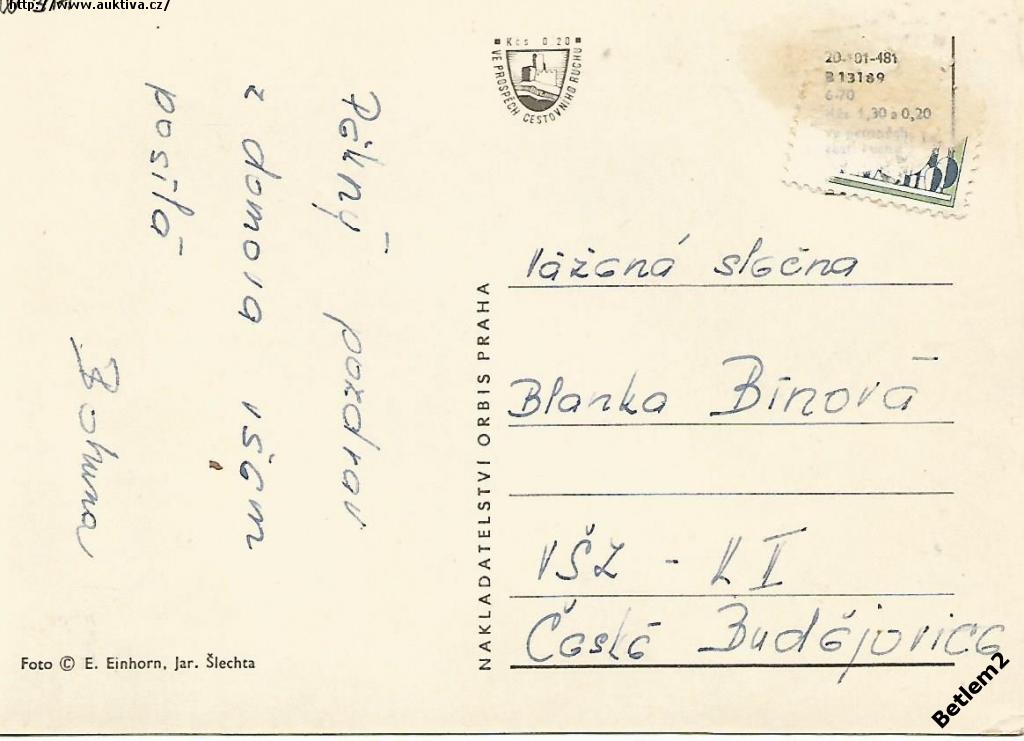 http://www.auktiva.cz/
Kčs 0 20
VE PROSPĚCH CESTOVNÍHO RUCHU
20-101-481
B 13189
6-70
Kčs 1,30 a 0,20
Pěkný pozdrav
z domova všem
posílá
Bohuna
NAKLADATELSTVÍ ORBIS PRAHA
Vážená slečna
Blanka Bínová
VŠZ - K I
České Budějovice
Foto © E. Einhorn, Jar. Šlechta
Betlem2